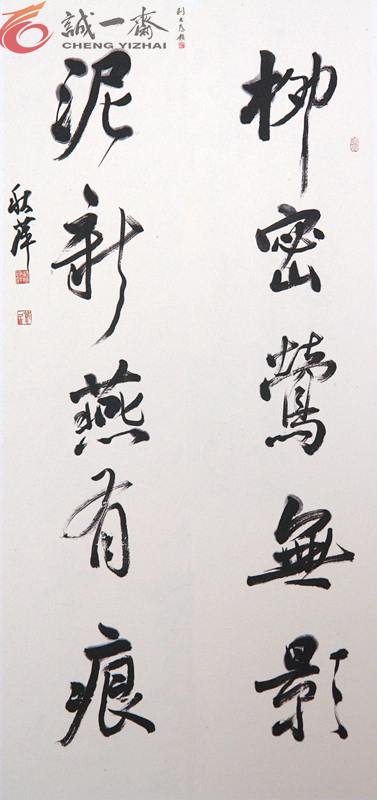 誠一齋
CHENG YIZHAI
柳密鶯無影
泥新燕有痕
秋萍